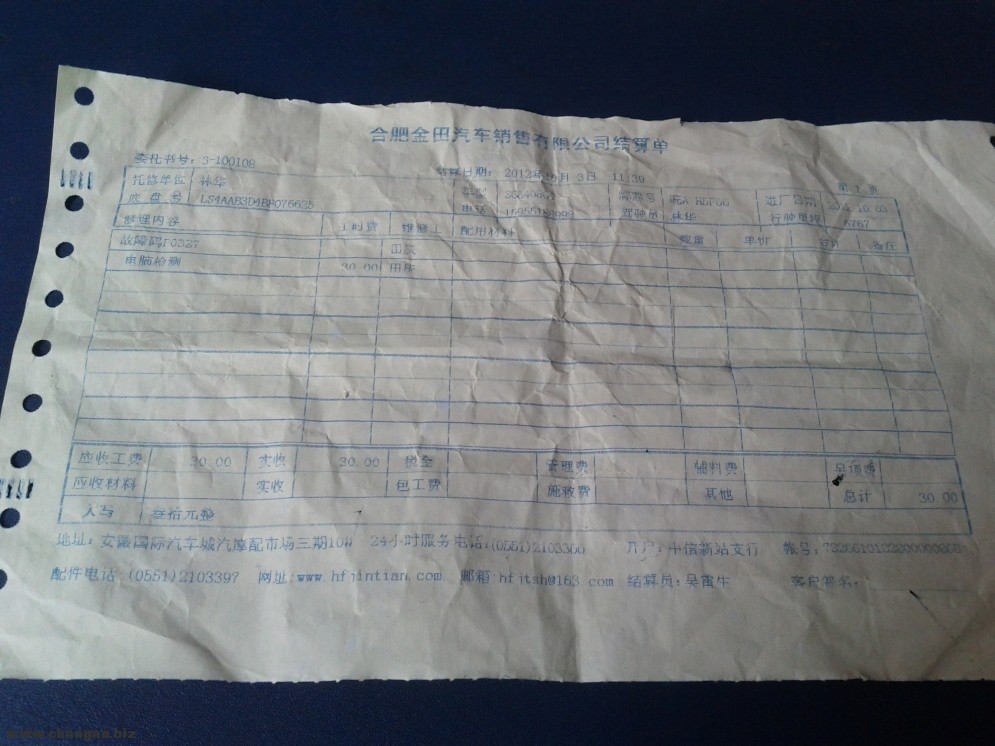 合肥金田汽车销售有限公司结算单
委托书号：3-100108 结算日期：2012年10月 3日 11:39 第 1 页
托修单位 林华 牌照号 进厂日期
底盘号 电话 驾驶员 林华 行驶里程 6767
修理内容 工时费 维修工 配用材料 数量 单价 合计 备注
故障码P0327 田庆
电脑检测 30.00 田庆
应收工费 30.00 实收 30.00 税金 管理费 辅料费 吊项费
应收材料 实收 包工费 施救费 其他 总计 30.00
大写 叁拾元整
地址：安徽国际汽车城汽摩配市场三期10# 24小时服务电话：(0551)2103366 开户：中信新站支行 帐号：
配件电话：(0551)2103397 网址:www.hfjintian.com 邮箱:hfjtsh@163.com 结算员：吴雷牛 客户签名：
www.chongan.biz